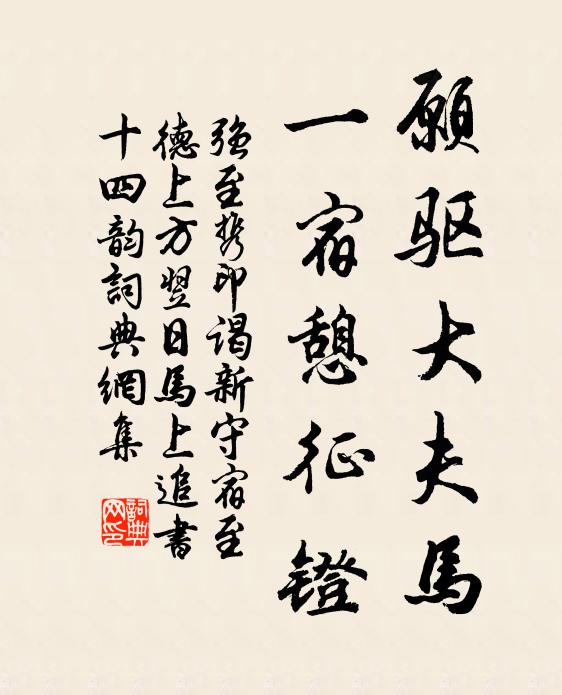 願驱大夫馬
一宿憩征鐙
強至携印謁新守宿至
德上方翌日馬上追書
十四韵詞典網集
詞典网印